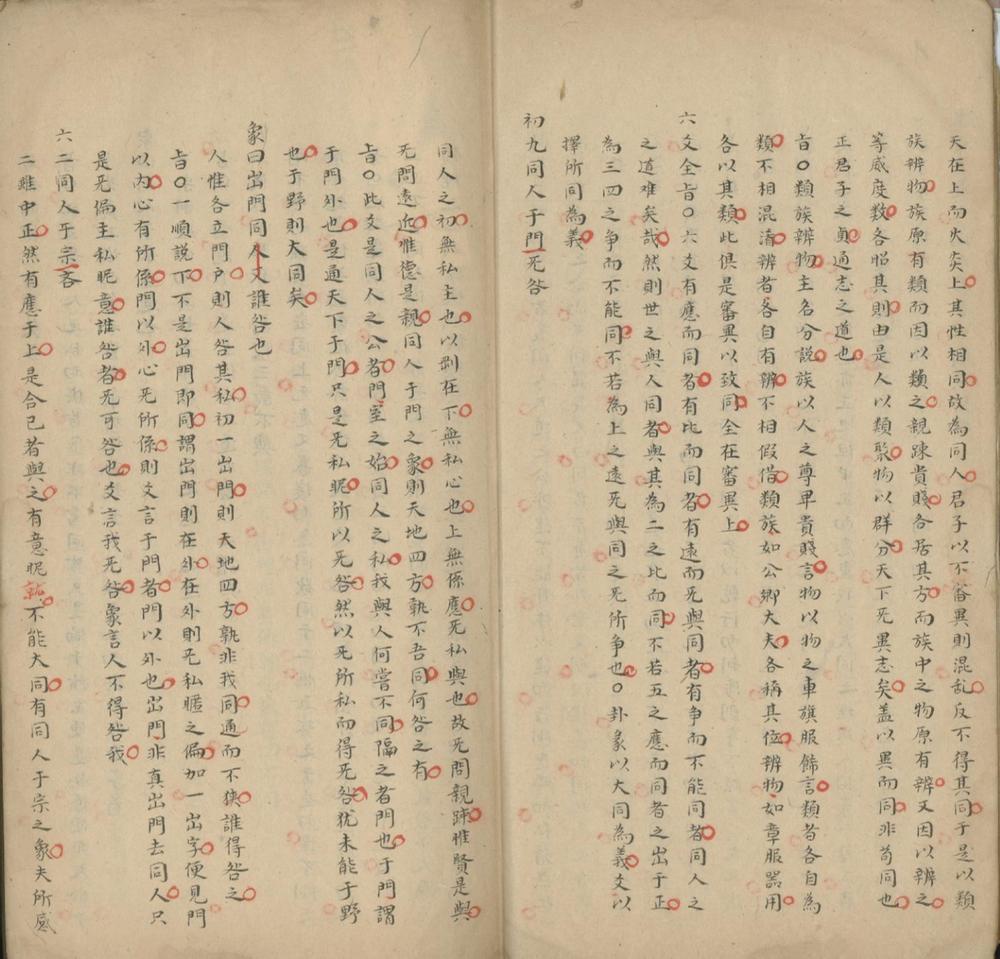 天在上而火炎上其性相同故為同人君子以不審異則混乱反不得其同于是以類
族辨物族原有類而因以類之親踈貴賤各居其方而族中之物原有辨又因以辨之
等威度数各昭其則由是人以類聚物以群分天下无異志矣盖以異而同非苟同也
正君子之貞通志之道也
旨○類族辨物主名分説族以人之尊卑貴賤言物以物之車旗服飾言類者各自為
類不相混淆辨者各自有辨不相假借類族如公卿大夫各稱其位辨物如章服器用
各以其類此俱是審異以致同全在審異上
六爻全旨○六爻有應而同者有比而同者有遠而无與同者有争而不能同者同人之
之道难矣哉然則世之與人同者與其為二之比而同不若五之應而同者之出于正
為三四之争而不能同不若為上之遠无與同之无所争也○卦彖以大同為義爻以
擇所同為義
初九同人于門无咎
同人之初無私主也以剛在下無私心也上無係應无私與也故无問親踈惟賢是與
无問遠近惟德是親同人于門之象則天地四方孰不吾同何咎之有
旨○此爻是同人之公者門室之始同人之私我與人何嘗不同隔之者門也于門謂
于門外也是通天下于門只是无私昵所以无咎然以无所私而得无咎犹未能于野
也于野則大同矣
象曰出門同人又誰咎也
人惟各立門户則人咎其私初一出門則天地四方孰非我同通而不狹誰得咎之
旨○一順說下不是出門即同謂出門則在外在外則无私暱之偏加一出字便見門
以内心有所係門以外心无所係則文言于門者門以外也出門非真出門去同人只
是无偏主私昵意誰咎者无可咎也爻言我无咎象言人不得咎我
六二同人于宗吝
二雖中正然有應于上是合已者與之有意昵 不能大同有同人于宗之象夫所感